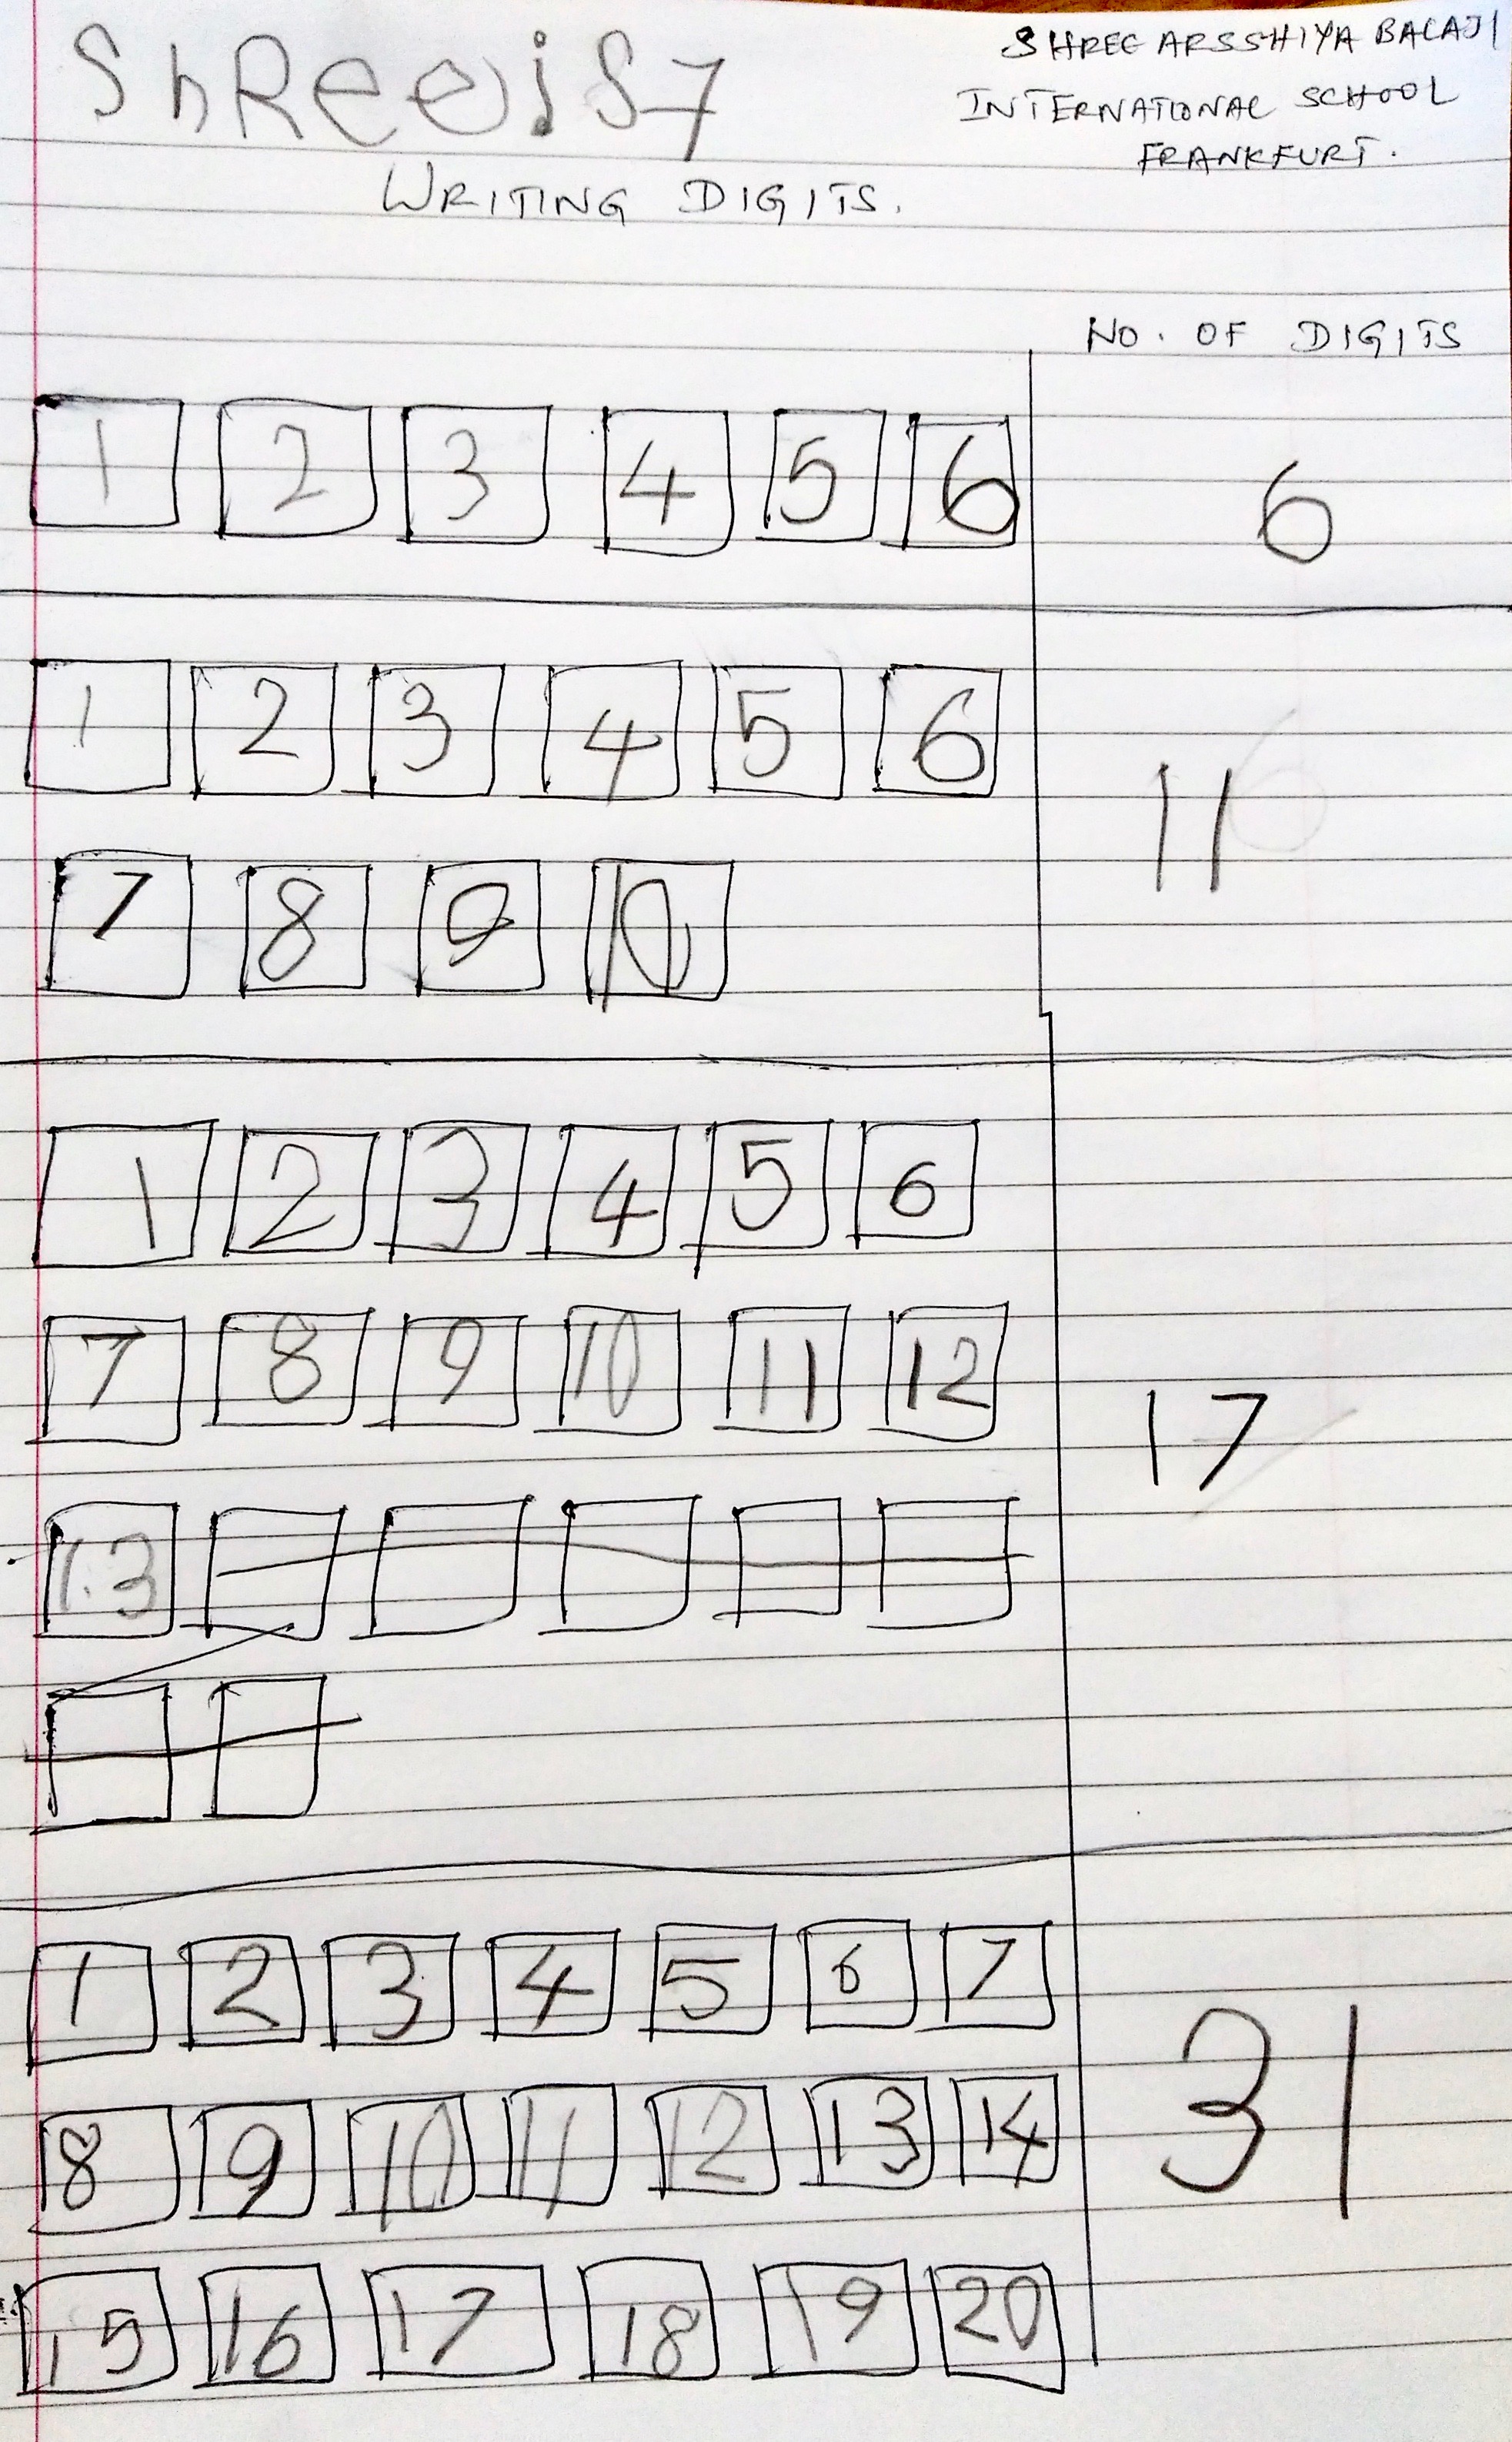 ShReeiS7
SHREE ARSSHIYA BALAJI
INTERNATIONAL SCHOOL
FRANKFURT.
WRITING DIGITS.
NO. OF DIGITS
1 2 3 4 5 6
6
1 2 3 4 5 6
7 8 9 10
11
1 2 3 4 5 6
7 8 9 10 11 12
13
17
1 2 3 4 5 6 7
8 9 10 11 12 13 14
15 16 17 18 19 20
31